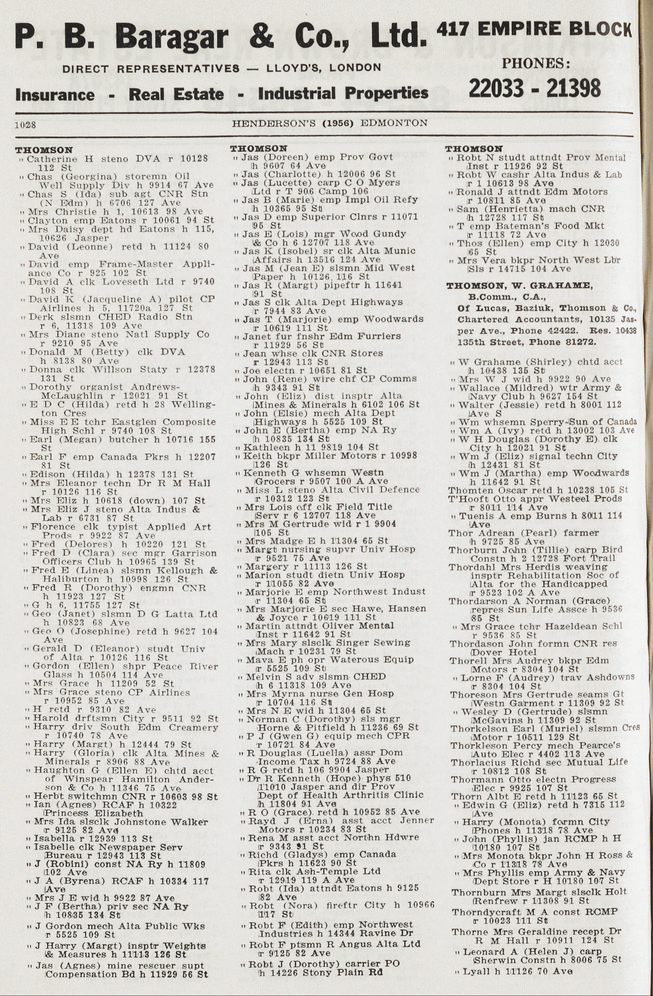 P. B. Baragar & Co., Ltd. 417 EMPIRE BLOCK
DIRECT REPRESENTATIVES — LLOYD'S, LONDON
PHONES:
Insurance - Real Estate - Industrial Properties
22033 - 21398
1028
HENDERSON'S (1956) EDMONTON
THOMSON
" Catherine H steno DVA r 10128
112 St
" Chas (Georgina) storemn Oil
Well Supply Div h 9914 67 Ave
" Chas S (Ida) sub agt CNR Stn
(N Edm) h 6706 127 Ave
" Mrs Christie h 1, 10613 98 Ave
" Clayton emp Eatons r 10061 94 St
" Mrs Daisy dept hd Eatons h 115,
10626 Jasper
" David (Leonne) retd h 11124 80
Ave
" David emp Frame-Master Appli-
ance Co r 925 102 St
" David A clk Loveseth Ltd r 9740
108 St
" David K (Jacqueline A) pilot CP
Airlines h 5, 11720a 127 St
" Derk slsmn CHED Radio Stn
r 6, 11318 109 Ave
" Mrs Diane steno Natl Supply Co
r 9210 95 Ave
" Donald M (Betty) clk DVA
h 8138 80 Ave
" Donna clk Willson Staty r 12378
131 St
" Dorothy organist Andrews-
McLaughlin r 12021 91 St
" E D C (Hilda) retd h 28 Welling-
ton Cres
" Miss E E tchr Eastglen Composite
High Schl r 9740 108 St
" Earl (Megan) butcher h 10716 155
St
" Earl F emp Canada Pkrs h 12207
81 St
" Edison (Hilda) h 12378 131 St
" Mrs Eleanor techn Dr R M Hall
r 10126 116 St
" Mrs Eliz h 10618 (down) 107 St
" Mrs Eliz J steno Alta Indus &
Lab r 6731 87 St
" Florence clk typist Applied Art
Prods r 9922 87 Ave
" Fred (Delores) h 10220 121 St
" Fred D (Clara) sec mgr Garrison
Officers Club h 10965 139 St
" Fred E (Linea) slsmn Kellough &
Haliburton h 10998 126 St
" Fred H (Dorothy) engmn CNR
h 11923 127 St
" G h 6, 11755 127 St
" Geo (Janet) slsmn D G Latta Ltd
h 10823 68 Ave
" Geo O (Josephine) retd h 9627 104
Ave
" Gerald D (Eleanor) studt Univ
of Alta r 10126 116 St
" Gordon (Ellen) shpr Peace River
Glass h 10504 114 Ave
" Mrs Grace h 11209 52 St
" Mrs Grace steno CP Airlines
r 10952 85 Ave
" H retd r 9310 82 Ave
" Harold drftsmn City r 9511 92 St
" Harry driv South Edm Creamery
r 10740 78 Ave
" Harry (Margt) h 12444 79 St
" Harry (Gloria) clk Alta Mines &
Minerals r 8906 88 Ave
" Haughton G (Ellen E) chtd acct
of Winspear Hamilton Ander-
son & Co h 11346 75 Ave
" Herbt switchmn CNR r 10603 98 St
" Ian (Agnes) RCAF h 10322
Princess Elizabeth
" Mrs Ida slsclk Johnstone Walker
r 9125 82 Ave
" Isabella r 12939 113 St
" Isabelle clk Newspaper Serv
Bureau r 12943 113 St
" J (Robini) const NA Ry h 11809
102 Ave
" J A (Byrena) RCAF h 10334 117
Ave
" Mrs J E wid h 9922 87 Ave
" J F (Bertha) priv sec NA Ry
h 10835 134 St
" J Gordon mech Alta Public Wks
r 5525 109 St
" J Harry (Margt) insptr Weights
& Measures h 11113 126 St
" Jas (Agnes) mine rescuer supt
Compensation Bd h 11929 56 St
THOMSON
" Jas (Doreen) emp Prov Govt
h 9607 64 Ave
" Jas (Charlotte) h 12006 96 St
" Jas (Lucette) carp C O Myers
Ltd r T 906 Camp 106
" Jas B (Marie) emp Impl Oil Refy
h 10365 95 St
" Jas D emp Superior Clnrs r 11071
95 St
" Jas E (Lois) mgr Wood Gundy
& Co h 6 12707 118 Ave
" Jas K (Isobel) sr clk Alta Munic
Affairs h 13516 124 Ave
" Jas M (Jean E) slsmn Mid West
Paper h 10126 116 St
" Jas R (Margt) pipeftr h 11641
91 St
" Jas S clk Alta Dept Highways
r 7944 83 Ave
" Jas T (Marjorie) emp Woodwards
h 10619 111 St
" Janet fur fnshr Edm Furriers
r 11929 56 St
" Jean whse clk CNR Stores
r 12943 113 St
" Joe electn r 10651 81 St
" John (Rene) wire chf CP Comms
h 9343 91 St
" John (Eliz) dist insptr Alta
Mines & Minerals h 6102 106 St
" John (Elsie) mech Alta Dept
Highways h 5525 109 St
" John E (Bertha) emp NA Ry
h 10835 134 St
" Kathleen h 11 9819 104 St
" Keith bkpr Miller Motors r 10998
126 St
" Kenneth G whsemn Westn
Grocers r 9507 100 A Ave
" Miss L steno Alta Civil Defence
r 10312 123 St
" Mrs Lois off clk Field Title
Serv r 6 12707 118 Ave
" Mrs M Gertrude wid r 1 9904
105 St
" Mrs Madge E h 11304 65 St
" Margt nursing supvr Univ Hosp
r 9521 75 Ave
" Margery r 11113 126 St
" Marion studt dietn Univ Hosp
r 11055 82 Ave
" Marjorie E emp Northwest Indust
r 11304 65 St
" Mrs Marjorie E sec Hawe, Hansen
& Joyce r 10619 111 St
" Martin attdnt Oliver Mental
Inst r 11642 91 St
" Mrs Mary slsclk Singer Sewing
Mach r 10231 79 St
" Mava E ph opr Waterous Equip
r 5525 109 St
" Melvin S adv slsmn CHED
h 6 11318 109 Ave
" Mrs Myrna nurse Gen Hosp
r 10704 116 St
" Mrs N E wid h 11304 65 St
" Norman C (Dorothy) sls mgr
Horne & Pitfield h 11236 69 St
" P J (Gwen G) equip mech CPR
r 10721 84 Ave
" R Douglas (Luella) assr Dom
Income Tax h 9724 88 Ave
" R G retd h 106 9904 Jasper
" Dr R Kenneth (Hope) phys 510
11010 Jasper and dir Prov
Dept of Health Arthritis Clinic
h 11804 91 Ave
" R O (Grace) retd h 10952 85 Ave
" Rayd J (Erna) asst acct Jenner
Motors r 10234 83 St
" Rena M asst acct Northn Hdwre
r 9343 91 St
" Richd (Gladys) emp Canada
Pkrs h 11623 90 St
" Rita clk Ash-Temple Ltd
r 12919 119 A Ave
" Robt (Ida) attndt Eatons h 9125
82 Ave
" Robt (Nora) fireftr City h 10966
117 St
" Robt F (Edith) emp Northwest
Industries h 14344 Ravine Dr
" Robt F ptsmn R Angus Alta Ltd
r 9125 82 Ave
" Robt J (Dorothy) carrier PO
h 14226 Stony Plain Rd
THOMSON
" Robt N studt attndt Prov Mental
Inst r 11926 92 St
" Robt W cashr Alta Indus & Lab
r 1 10613 98 Ave
" Ronald J attdnt Edm Motors
r 10811 85 Ave
" Sam (Henrietta) mach CNR
h 12728 117 St
" T emp Bateman's Food Mkt
r 11118 72 Ave
" Thos (Ellen) emp City h 12030
65 St
" Mrs Vera bkpr North West Lbr
Sls r 14715 104 Ave
THOMSON, W. GRAHAME,
B.Comm., C.A.,
Of Lucas, Bazink, Thomson & Co.,
Chartered Accountants, 10135 Jas-
per Ave., Phone 42422. Res. 10438
135th Street, Phone 81272.
" W Grahame (Shirley) chtd acct
h 10438 135 St
" Mrs W J wid h 9922 90 Ave
" Wallace (Mildred) wtr Army &
Navy Club h 9627 154 St
" Walter (Jessie) retd h 8001 112
Ave S
" Wm whsemn Sperry-Sun of Canada
" Wm A (Ivy) retd h 13002 103 Ave
" W H Douglas (Dorothy E) clk
City h 12021 91 St
" Wm J (Eliz) signal techn City
h 12431 81 St
" Wm J (Martha) emp Woodwards
h 11642 91 St
Thomten Oscar retd h 10238 105 St
T'Hooft Otto appr Westeel Prods
r 8011 114 Ave
" Tuenis A emp Burns h 8011 114
Ave
Thor Adrean (Pearl) farmer
h 9725 85 Ave
Thorburn John (Tillie) carp Bird
Constn h 2 12728 Fort Trail
Thordahl Mrs Herdis weaving
insptr Rehabilitation Soc of
Alta for the Handicapped
r 9523 102 A Ave
Thordarson A Norman (Grace)
repres Sun Life Assce h 9536
85 St
" Mrs Grace tchr Hazeldean Schl
r 9536 85 St
Thordason John formn CNR res
Dover Hotel
Thorell Mrs Audrey bkpr Edm
Motors r 8304 104 St
" Lorne F (Audrey) trav Ashdowns
r 8304 104 St
Thoreson Mrs Gertrude seams Gt
Westn Garment r 11309 92 St
" Wesley D (Gertrude) slsmn
McGavins h 11309 92 St
Thorkelson Earl (Muriel) slsmn Cres
Motor r 10511 129 St
Thorkleson Percy mech Pearce's
Auto Elec r 4402 113 Ave
Thorlacius Richd sec Mutual Life
r 10812 108 St
Thormann Otto electn Progress
Elec r 9925 107 St
Thorn Albt E retd h 11123 65 St
" Edwin G (Eliz) retd h 7315 112
Ave
" Harry (Monota) formn City
Phones h 11318 78 Ave
" John (Phyllis) jan RCMP h H
10180 107 St
" Mrs Monota bkpr John H Ross &
Co r 11318 78 Ave
" Mrs Phyllis emp Army & Navy
Dept Store r H 10180 107 St
Thornburn Mrs Margt slsclk Holt
Renfrew r 11308 91 St
Thorndycraft M A const RCMP
r 10023 111 St
Thorne Mrs Geraldine recept Dr
R M Hall r 10911 124 St
" Leonard A (Helen J) carp
Sherwin Constn h 8006 75 St
" Lyall h 11126 70 Ave